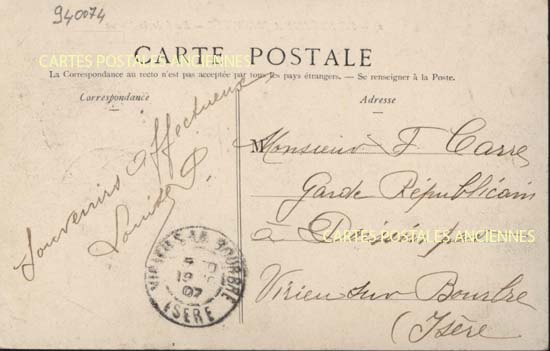 940074
CARTE POSTALE
CARTES POSTALES ANCIENNES
La Correspondance au recto n'est pas acceptée par tous les pays étrangers. — Se renseigner à la Poste.
Correspondance
Souvenirs affectueux
Louise P.
Adresse
Monsieur F Carre
Garde Républicain
à
CARTES POSTALES ANCIENNES
Virieu sur Bourbre
(Isère
VIRIEU-S-BOURBRE
19
07
ISERE